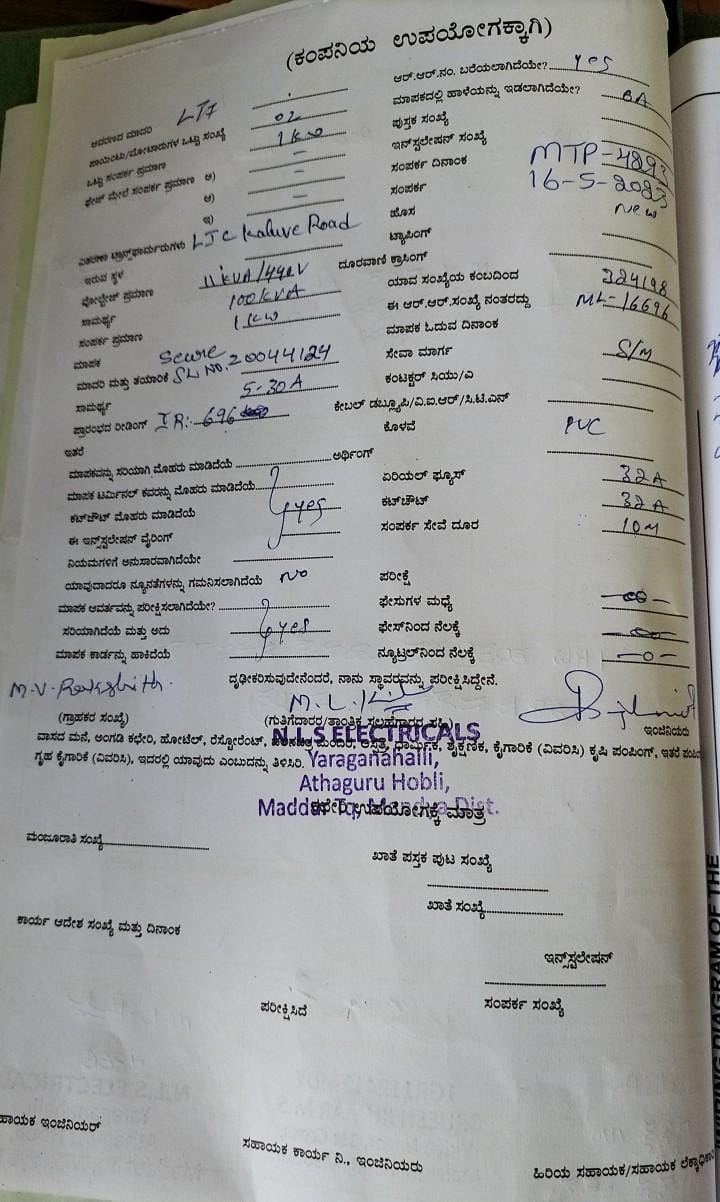 (ಕಂಪನಿಯ ಉಪಯೋಗಕ್ಕಾಗಿ)
ಆರ್.ಆರ್.ನಂ. ಬರೆಯಲಾಗಿದೆಯೇ? yes
ಮಾಪಕದಲ್ಲಿ ಹಾಳೆಯನ್ನು ಇಡಲಾಗಿದೆಯೇ?
ಆವರಣದ ಮಾದರಿ LT7
ಪಾಯಿಂಟು/ಮೋಟಾರುಗಳ ಒಟ್ಟು ಸಂಖ್ಯೆ 02 ಪುಸ್ತಕ ಸಂಖ್ಯೆ
ಒಟ್ಟು ಸಂಪರ್ಕ ಪ್ರಮಾಣ 1 KW ಇನ್‌ಸ್ಟಲೇಷನ್ ಸಂಖ್ಯೆ MTP-4893
ಫೇಜ್ ಮೇಲೆ ಸಂಪರ್ಕ ಪ್ರಮಾಣ ಅ) – ಸಂಪರ್ಕ ದಿನಾಂಕ 16-5-2023
ಆ) – ಸಂಪರ್ಕ New
ಇ) – ಹೊಸ
ವಿತರಣಾ ಟ್ರಾನ್ಸ್‌ಫಾರ್ಮರುಗಳು LIC Kaluve Road ಟ್ಯಾಪಿಂಗ್
ಇರುವ ಸ್ಥಳ ದೂರವಾಣಿ ಕ್ರಾಸಿಂಗ್
ವೋಲ್ಟೇಜ್ ಪ್ರಮಾಣ 11 KVA/440V ಯಾವ ಸಂಖ್ಯೆಯ ಕಂಬದಿಂದ 324198
ಸಾಮರ್ಥ್ಯ 100KVA ಈ ಆರ್.ಆರ್.ಸಂಖ್ಯೆ ನಂತರದ್ದು ML-16696
ಸಂಪರ್ಕ ಪ್ರಮಾಣ 1 KW ಮಾಪಕ ಓದುವ ದಿನಾಂಕ
ಮಾಪಕ Secure ಸೇವಾ ಮಾರ್ಗ S/M
ಮಾದರಿ ಮತ್ತು ತಯಾರಿಕೆ SL NO. 20044124 ಕಂಟಕ್ಟರ್ ಸಿಯು/ಎ
ಸಾಮರ್ಥ್ಯ 5-30A ಕೇಬಲ್ ಡಬ್ಲ್ಯೂಪಿ/ವಿ.ಐ.ಆರ್/ಸಿ.ಟಿ.ಎನ್
ಪ್ರಾರಂಭದ ರೀಡಿಂಗ್ IR:- 696 ಕೊಳವೆ PVC
ಇತರೆ
ಮಾಪಕವನ್ನು ಸರಿಯಾಗಿ ಮೊಹರು ಮಾಡಿದೆಯೆ ಅರ್ಥಿಂಗ್
ಮಾಪಕ ಟರ್ಮಿನಲ್ ಕವರನ್ನು ಮೊಹರು ಮಾಡಿದೆಯೆ ಏರಿಯಲ್ ಫ್ಯೂಸ್ 32A
ಕಟ್‌ಔಟ್ ಮೊಹರು ಮಾಡಿದೆಯೆ yes ಕಟ್‌ಔಟ್ 32A
ಈ ಇನ್‌ಸ್ಟಲೇಷನ್ ವೈರಿಂಗ್ ಸಂಪರ್ಕ ಸೇವೆ ದೂರ 10M
ನಿಯಮಗಳಿಗೆ ಅನುಸಾರವಾಗಿದೆಯೇ
ಯಾವುದಾದರೂ ನ್ಯೂನತೆಗಳನ್ನು ಗಮನಿಸಲಾಗಿದೆಯೆ NO ಪರೀಕ್ಷೆ
ಮಾಪಕ ಆವರ್ತವನ್ನು ಪರೀಕ್ಷಿಸಲಾಗಿದೆಯೇ? ಫೇಸುಗಳ ಮಧ್ಯೆ
ಸರಿಯಾಗಿದೆಯೆ ಮತ್ತು ಅದು yes ಫೇಸ್‌ನಿಂದ ನೆಲಕ್ಕೆ
ಮಾಪಕ ಕಾರ್ಡನ್ನು ಹಾಕಿದೆಯೆ ನ್ಯೂಟ್ರಲ್‌ನಿಂದ ನೆಲಕ್ಕೆ -0-
ದೃಢೀಕರಿಸುವುದೇನೆಂದರೆ, ನಾನು ಸ್ಥಾವರವನ್ನು ಪರೀಕ್ಷಿಸಿದ್ದೇನೆ.
(ಗ್ರಾಹಕರ ಸಂಖ್ಯೆ) (ಗುತಿಗೆದಾರರ/ತಾಂತ್ರಿಕ ಸಲಹೆಗಾರರ ಸಹಿ) ಇಂಜಿನಿಯರು
N.L.S ELECTRICALS
ವಾಸದ ಮನೆ, ಅಂಗಡಿ ಕಛೇರಿ, ಹೋಟೆಲ್, ರೆಸ್ಟೋರೆಂಟ್, ಧಾರ್ಮಿಕ, ಶೈಕ್ಷಣಿಕ, ಕೈಗಾರಿಕೆ (ವಿವರಿಸಿ) ಕೃಷಿ ಪಂಪಿಂಗ್, ಇತರೆ
ಗೃಹ ಕೈಗಾರಿಕೆ (ವಿವರಿಸಿ), ಇದರಲ್ಲಿ ಯಾವುದು ಎಂಬುದನ್ನು ತಿಳಿಸಿ.
Yaraganahalli,
Athaguru Hobli,
Maddur Tq, Mandya Dist.
ಕಛೇರಿ ಉಪಯೋಗಕ್ಕೆ ಮಾತ್ರ
ಮಂಜೂರಾತಿ ಸಂಖ್ಯೆ ಖಾತೆ ಪಸ್ತಕ ಪುಟ ಸಂಖ್ಯೆ
ಖಾತೆ ಸಂಖ್ಯೆ
ಕಾರ್ಯ ಆದೇಶ ಸಂಖ್ಯೆ ಮತ್ತು ದಿನಾಂಕ
ಇನ್‌ಸ್ಟಲೇಷನ್
ಪರೀಕ್ಷಿಸಿದೆ ಸಂಪರ್ಕ ಸಂಖ್ಯೆ
ಹಾಯಕ ಇಂಜಿನಿಯರ್ ಸಹಾಯಕ ಕಾರ್ಯ ನಿ., ಇಂಜಿನಿಯರು ಹಿರಿಯ ಸಹಾಯಕ/ಸಹಾಯಕ
DIAGRAM OF THE